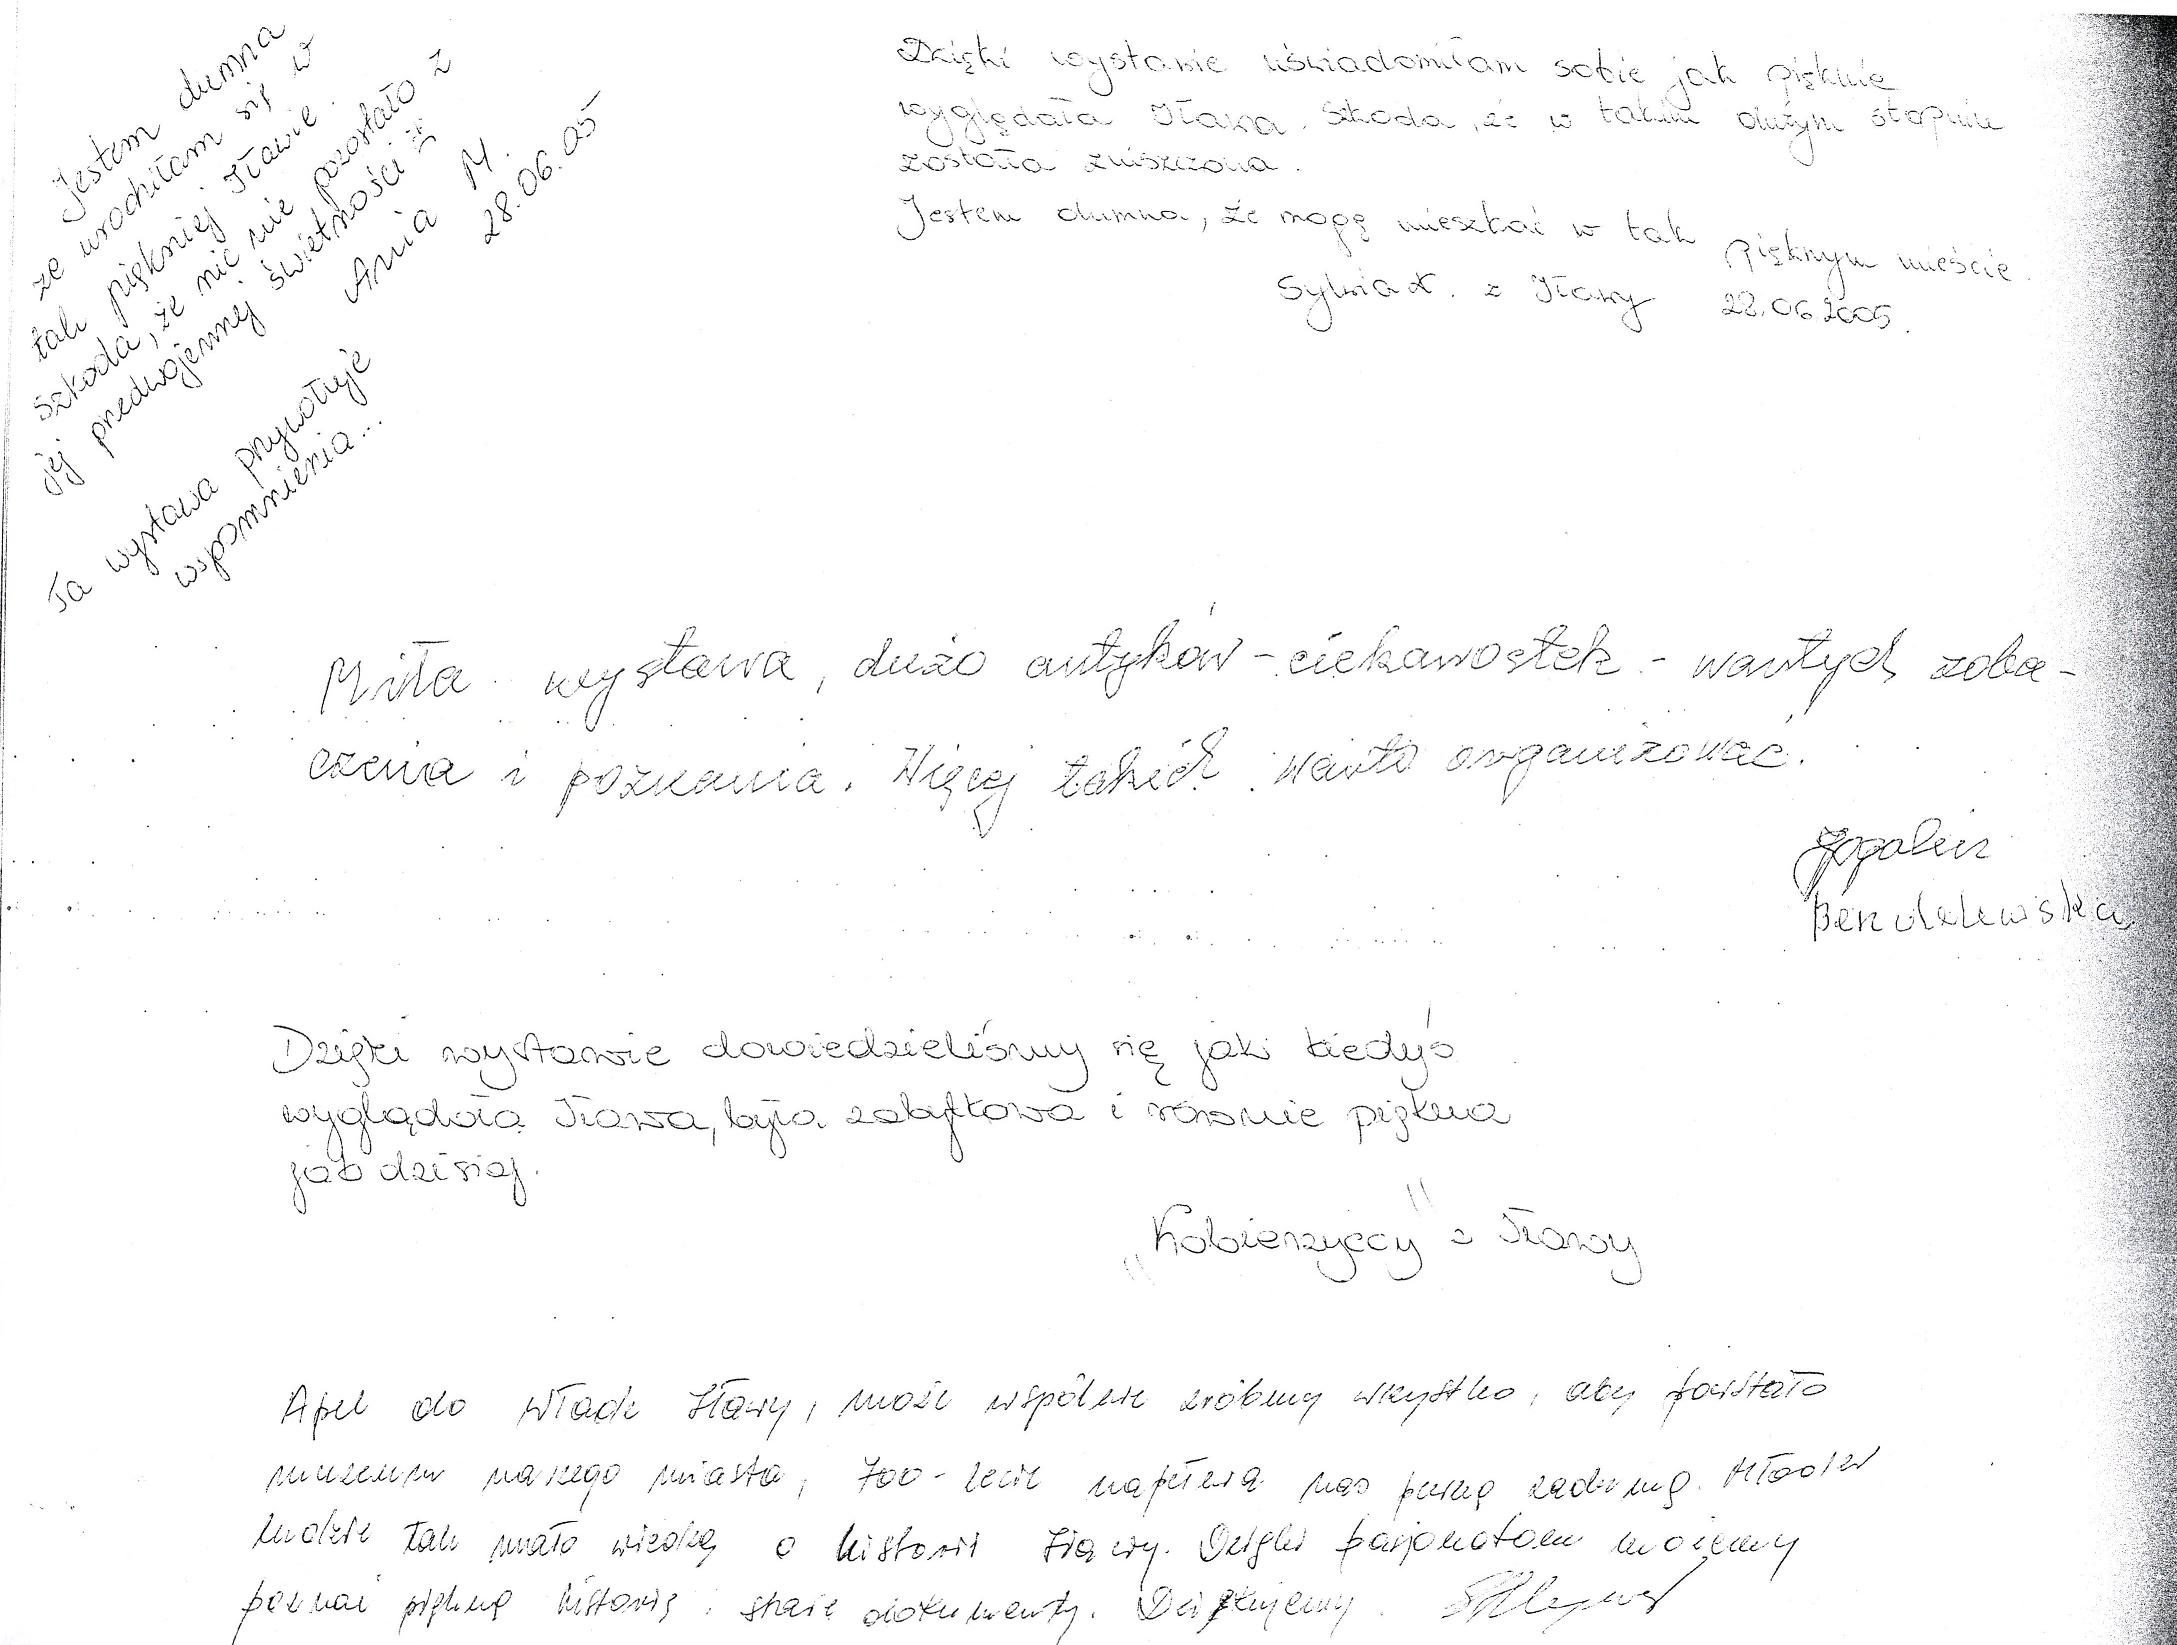 Jestem dumna
że urodziłam się w
tak pięknej Iławie.
szkoda, że nic nie pozostało z
jej przedwojennej świetności
Ania M.
28.06.05
Ta wystawa przywołuje
wspomnienia...
Dzięki wystawie uświadomiłam sobie jak pięknie
wyglądała Iława. Szkoda, że w takim dużym stopniu
została zniszczona.
Jestem dumna, że mogę mieszkać w tak pięknym mieście.
Sylwia K. z Iławy 28.06.2005.
Miła wystawa, dużo antyków - ciekawostek - wartych zoba-
czenia i poznania. Więcej takich warto organizować.
Dzięki wystawie dowiedzieliśmy się jak kiedyś
wyglądała Iława, była zabytkowa i równie piękna
jak dzisiaj.
"Kobierzyccy" z Iławy
Apel do władz Iławy, może wspólnie zróbmy wszystko, aby powstało
muzeum naszego miasta, 700-lecie napełnia nas pewną zadumą. Młodzi
ludzie tak mało wiedzą o historii Iławy. Dzięki pasjonatom możemy
poznać piękną historię, stare dokumenty. Dziękujemy.